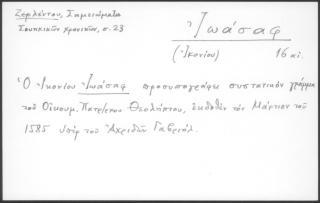 Ζερλέντου, Σημειώματα
Σουηκικῶν χρονικῶν, σ. 23
Ἰωάσαφ
(Ἰκονίου) 16 αἰ.
Ὁ Ἰκονίου Ἰωάσαφ προσυπογράφει συστατικὸν γράμμα
τοῦ Οἰκουμ. Πατρ/χου Θεολήπτου, ἐκδοθὲν τὸν Μάρτιον τοῦ
1585 ὑπὲρ τοῦ Ἀχριδῶν Γαβριήλ.